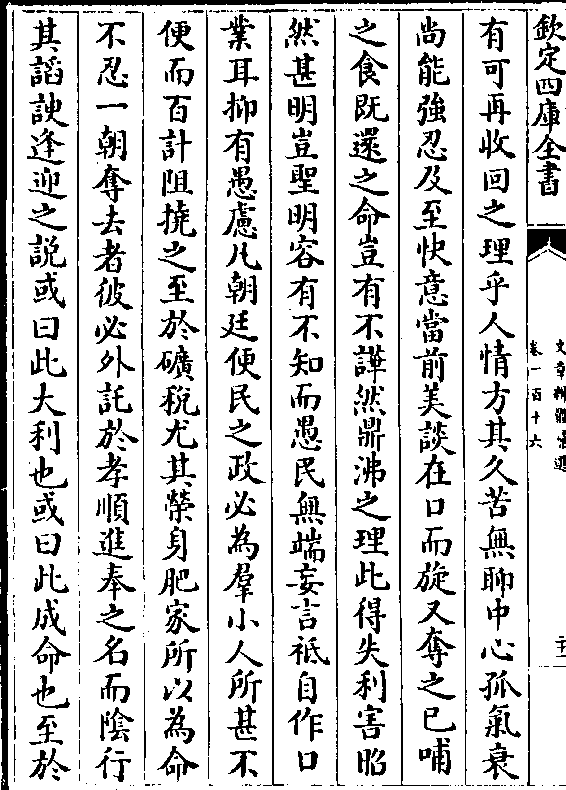 欽定四庫全書
文章辨體彙選
卷一百十六
有可再收回之理乎人情方其久苦無聊中心孤氣衰
尚能強忍及至快意當前美談在口而旋又奪之已哺
之食既還之命豈有不譁然鼎沸之理此得失利害昭
然甚明豈聖明容有不知而愚民無端妄言祗自作口
業耳抑有愚慮凡朝廷便民之政必為羣小人所甚不
便而百計阻撓之至於礦稅尤其榮身肥家所以為命
不忍一朝奪去者彼必外託於孝順進奉之名而陰行
其謟諛逢迎之説或曰此大利也或曰此成命也至於